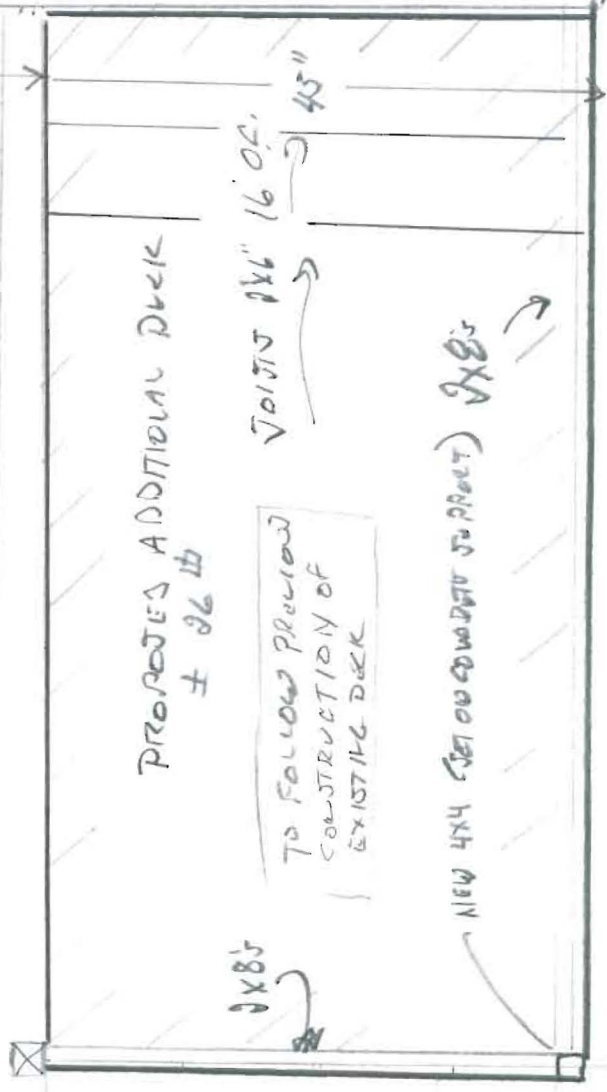 PROPOSED ADDITIONAL DECK
± 26 ⌗
JOISTS 2X6" 16 O.C.
45"
TO FOLLOW PREVIOUS
CONSTRUCTION OF
EXISTING DECK
2X8's
NEW 4X4 (SET ON CONCRETE SUPPORT)
2X8's